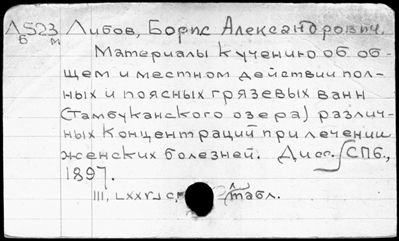 Л523 Либов, Борис Александрович.
Б м
Материалы к учению об об-
щем и местном действии пол-
ных и поясных грязевых ванн
(Тамбуканского озера) различ-
ных концентраций при лечении
женских болезней. Дисс. СПб.,
1897.
III, LXXVJ с. табл.